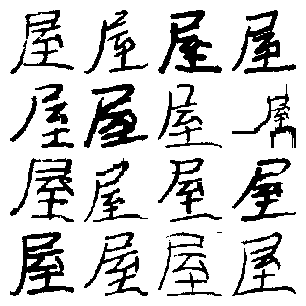 屋屋屋屋
屋屋屋屋
屋屋屋屋
屋屋屋屋